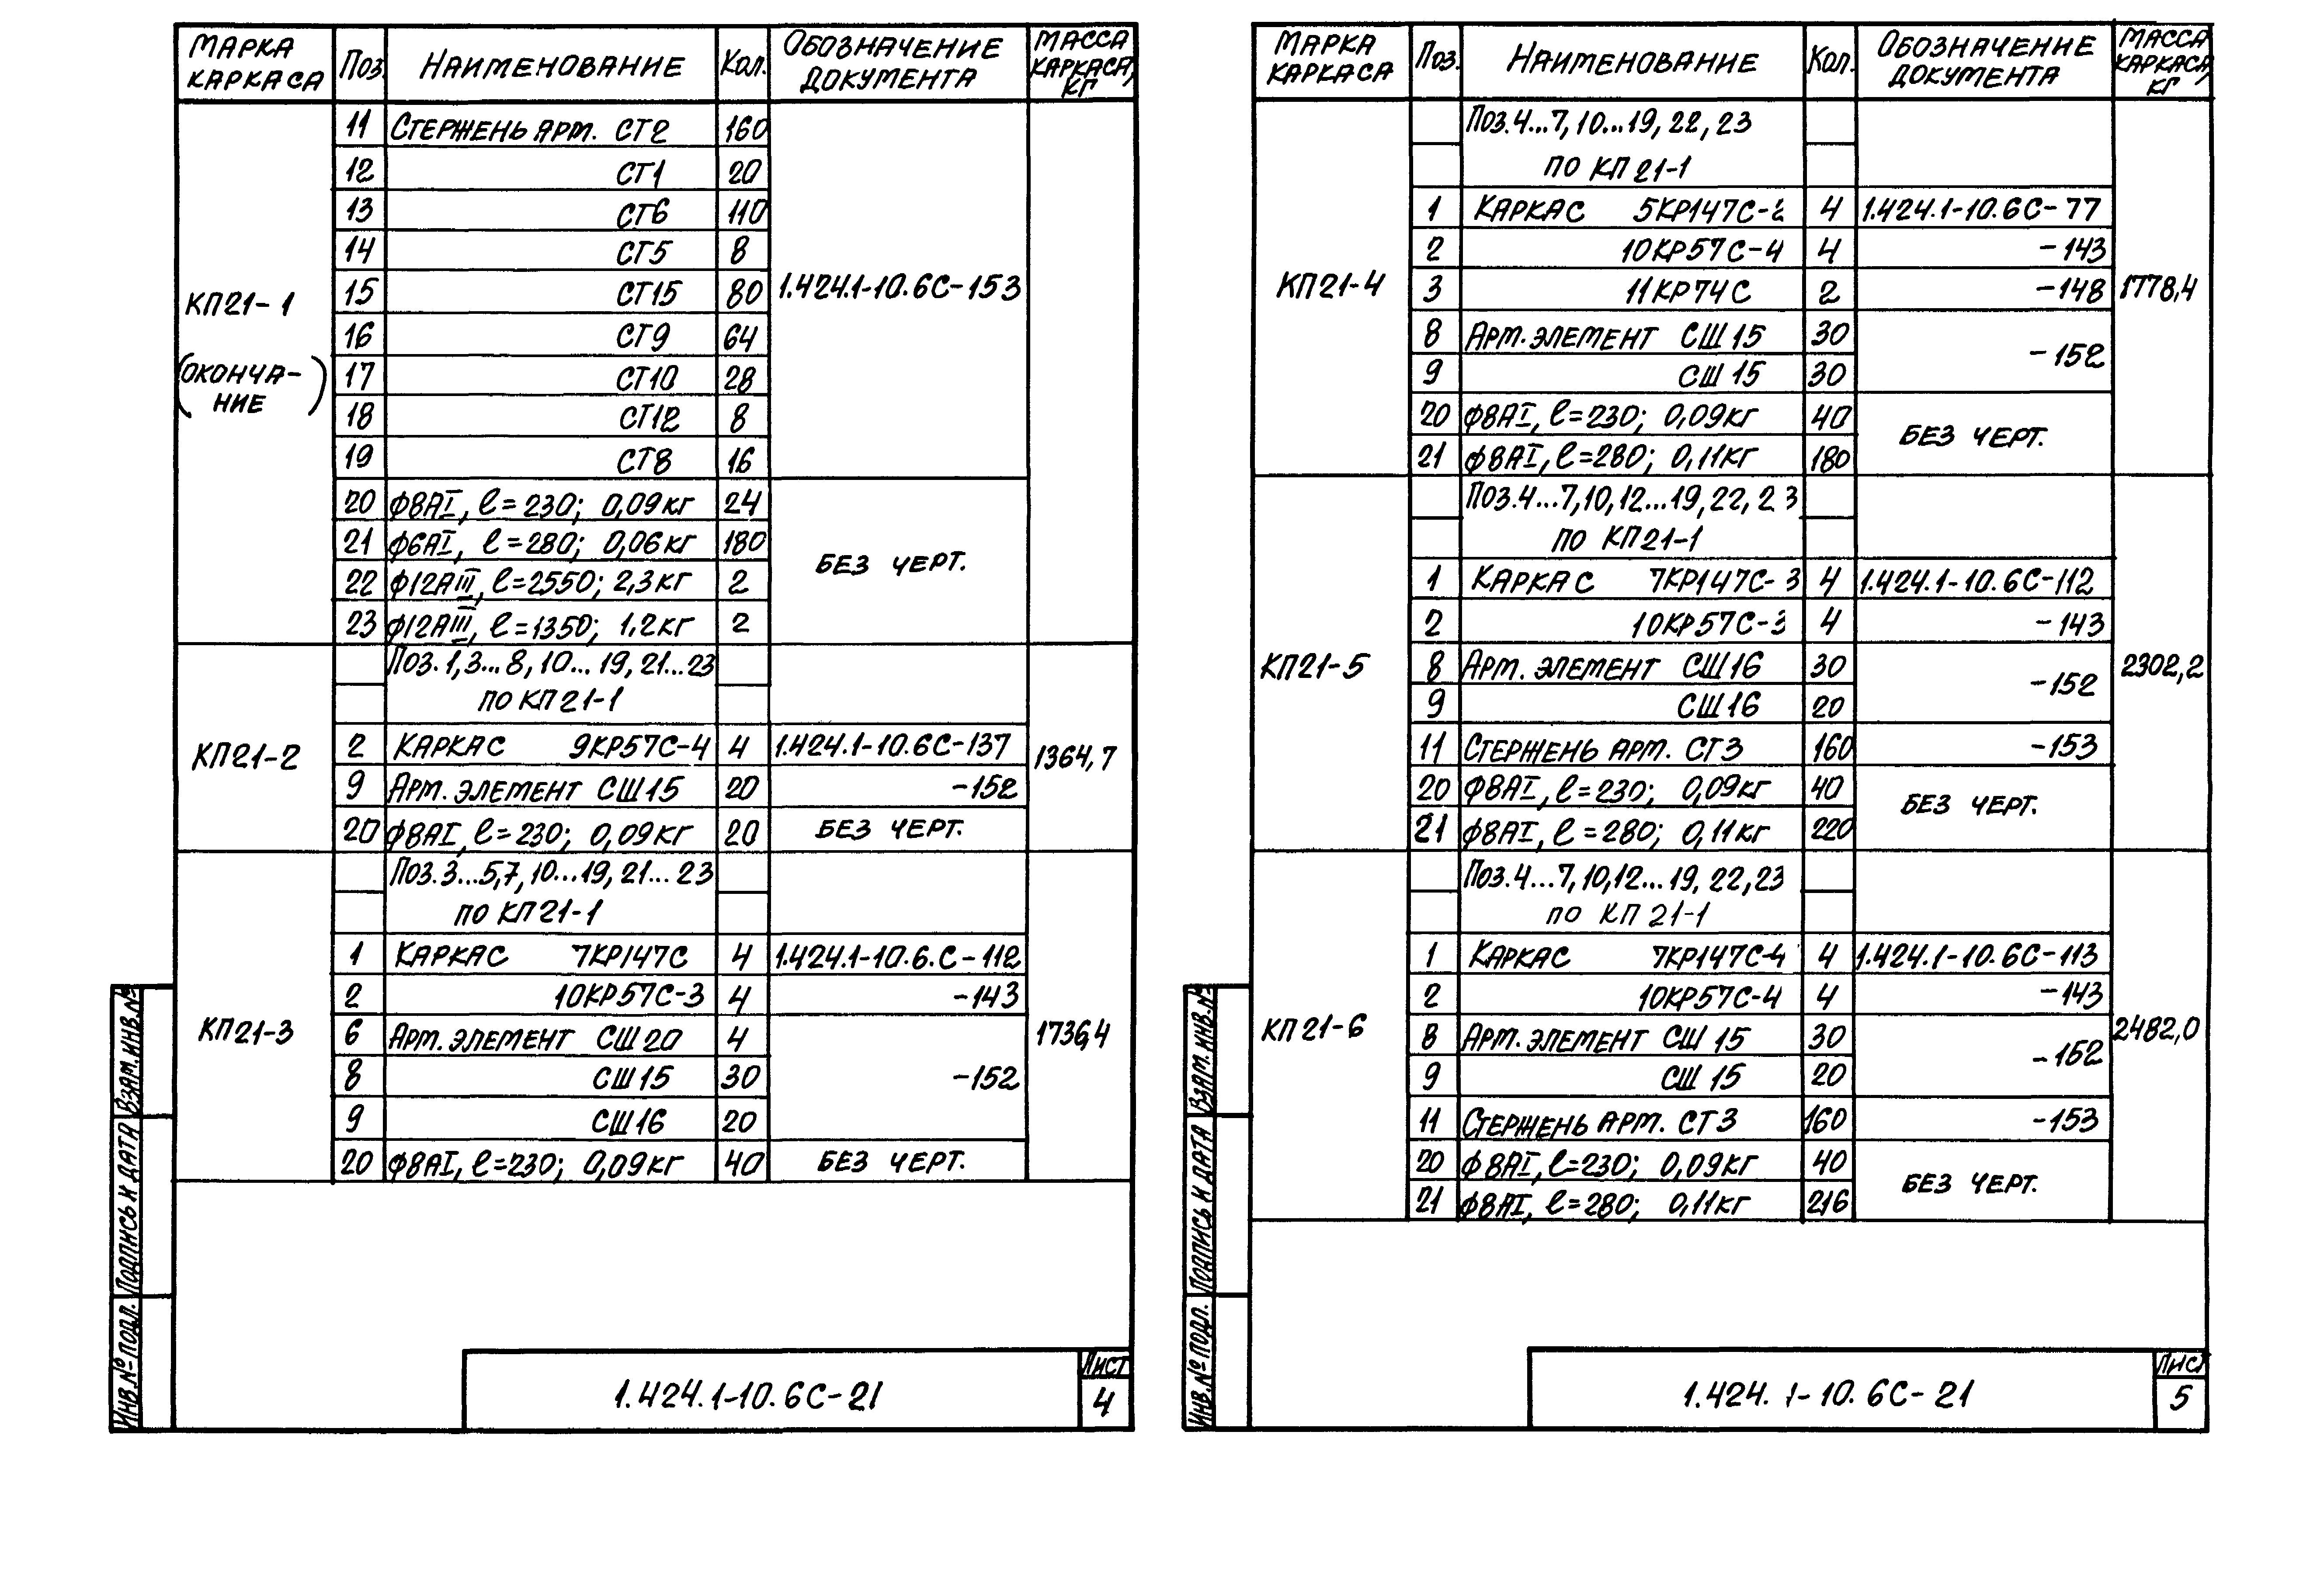 Марка каркаса Поз. Наименование Кол. Обозначение документа Масса каркаса, кг
КП21-1 (окончание)
11 Стержень арм. СТ2 160 1.424.1-10.6С-153
12 СТ1 20
13 СТ6 110
14 СТ5 8
15 СТ15 80
16 СТ9 64
17 СТ10 28
18 СТ12 8
19 СТ8 16
20 ф8АI, ℓ=230; 0,09кг 24 Без черт.
21 ф6АI, ℓ=280; 0,06кг 180
22 ф12АIII, ℓ=2550; 2,3кг 2
23 ф12АIII, ℓ=1350; 1,2кг 2
КП21-2 1364,7
Поз. 1, 3...8, 10...19, 21...23
по КП21-1
2 Каркас 9КР57С-4 4 1.424.1-10.6С-137
9 Арм. элемент СШ15 20 -152
20 ф8АI, ℓ=230; 0,09кг 20 Без черт.
КП21-3 1736,4
Поз. 3...5,7, 10...19, 21...23
по КП21-1
1 Каркас 7КР147С 4 1.424.1-10.6.С-112
2 10КР57С-3 4 -143
6 Арм. элемент СШ20 4 -152
8 СШ15 30
9 СШ16 20
20 ф8АI, ℓ=230; 0,09кг 40 Без черт.
Инв.№ подл. Подпись и дата Взам.инв.№
1.424.1-10.6С-21
Лист
4
Марка каркаса Поз. Наименование Кол. Обозначение документа Масса каркаса, кг
КП21-4 1778,4
Поз. 4...7, 10...19, 22, 23
по КП21-1
1 Каркас 5КР147С-2 4 1.424.1-10.6С-77
2 10КР57С-4 4 -143
3 11КР74С 2 -148
8 Арм. элемент СШ15 30 -152
9 СШ15 30
20 ф8АI, ℓ=230; 0,09кг 40 Без черт.
21 ф8АI, ℓ=280; 0,11кг 180
КП21-5 2302,2
Поз. 4...7, 10, 12...19, 22, 23
по КП21-1
1 Каркас 7КР147С-3 4 1.424.1-10.6С-112
2 10КР57С-3 4 -143
8 Арм. элемент СШ16 30 -152
9 СШ16 20
11 Стержень арм. СТ3 160 -153
20 ф8АI, ℓ=230; 0,09кг 40 Без черт.
21 ф8АI, ℓ=280; 0,11кг 220
КП21-6 2482,0
Поз. 4...7, 10, 12...19, 22, 23
по КП21-1
1 Каркас 7КР147С-4 4 1.424.1-10.6С-113
2 10КР57С-4 4 -143
8 Арм. элемент СШ15 30 -152
9 СШ15 20
11 Стержень арм. СТ3 160 -153
20 ф8АI, ℓ=230; 0,09кг 40 Без черт.
21 ф8АI, ℓ=280; 0,11кг 216
Инв.№ подл. Подпись и дата Взам.инв.№
1.424.1-10.6С-21
Лист
5